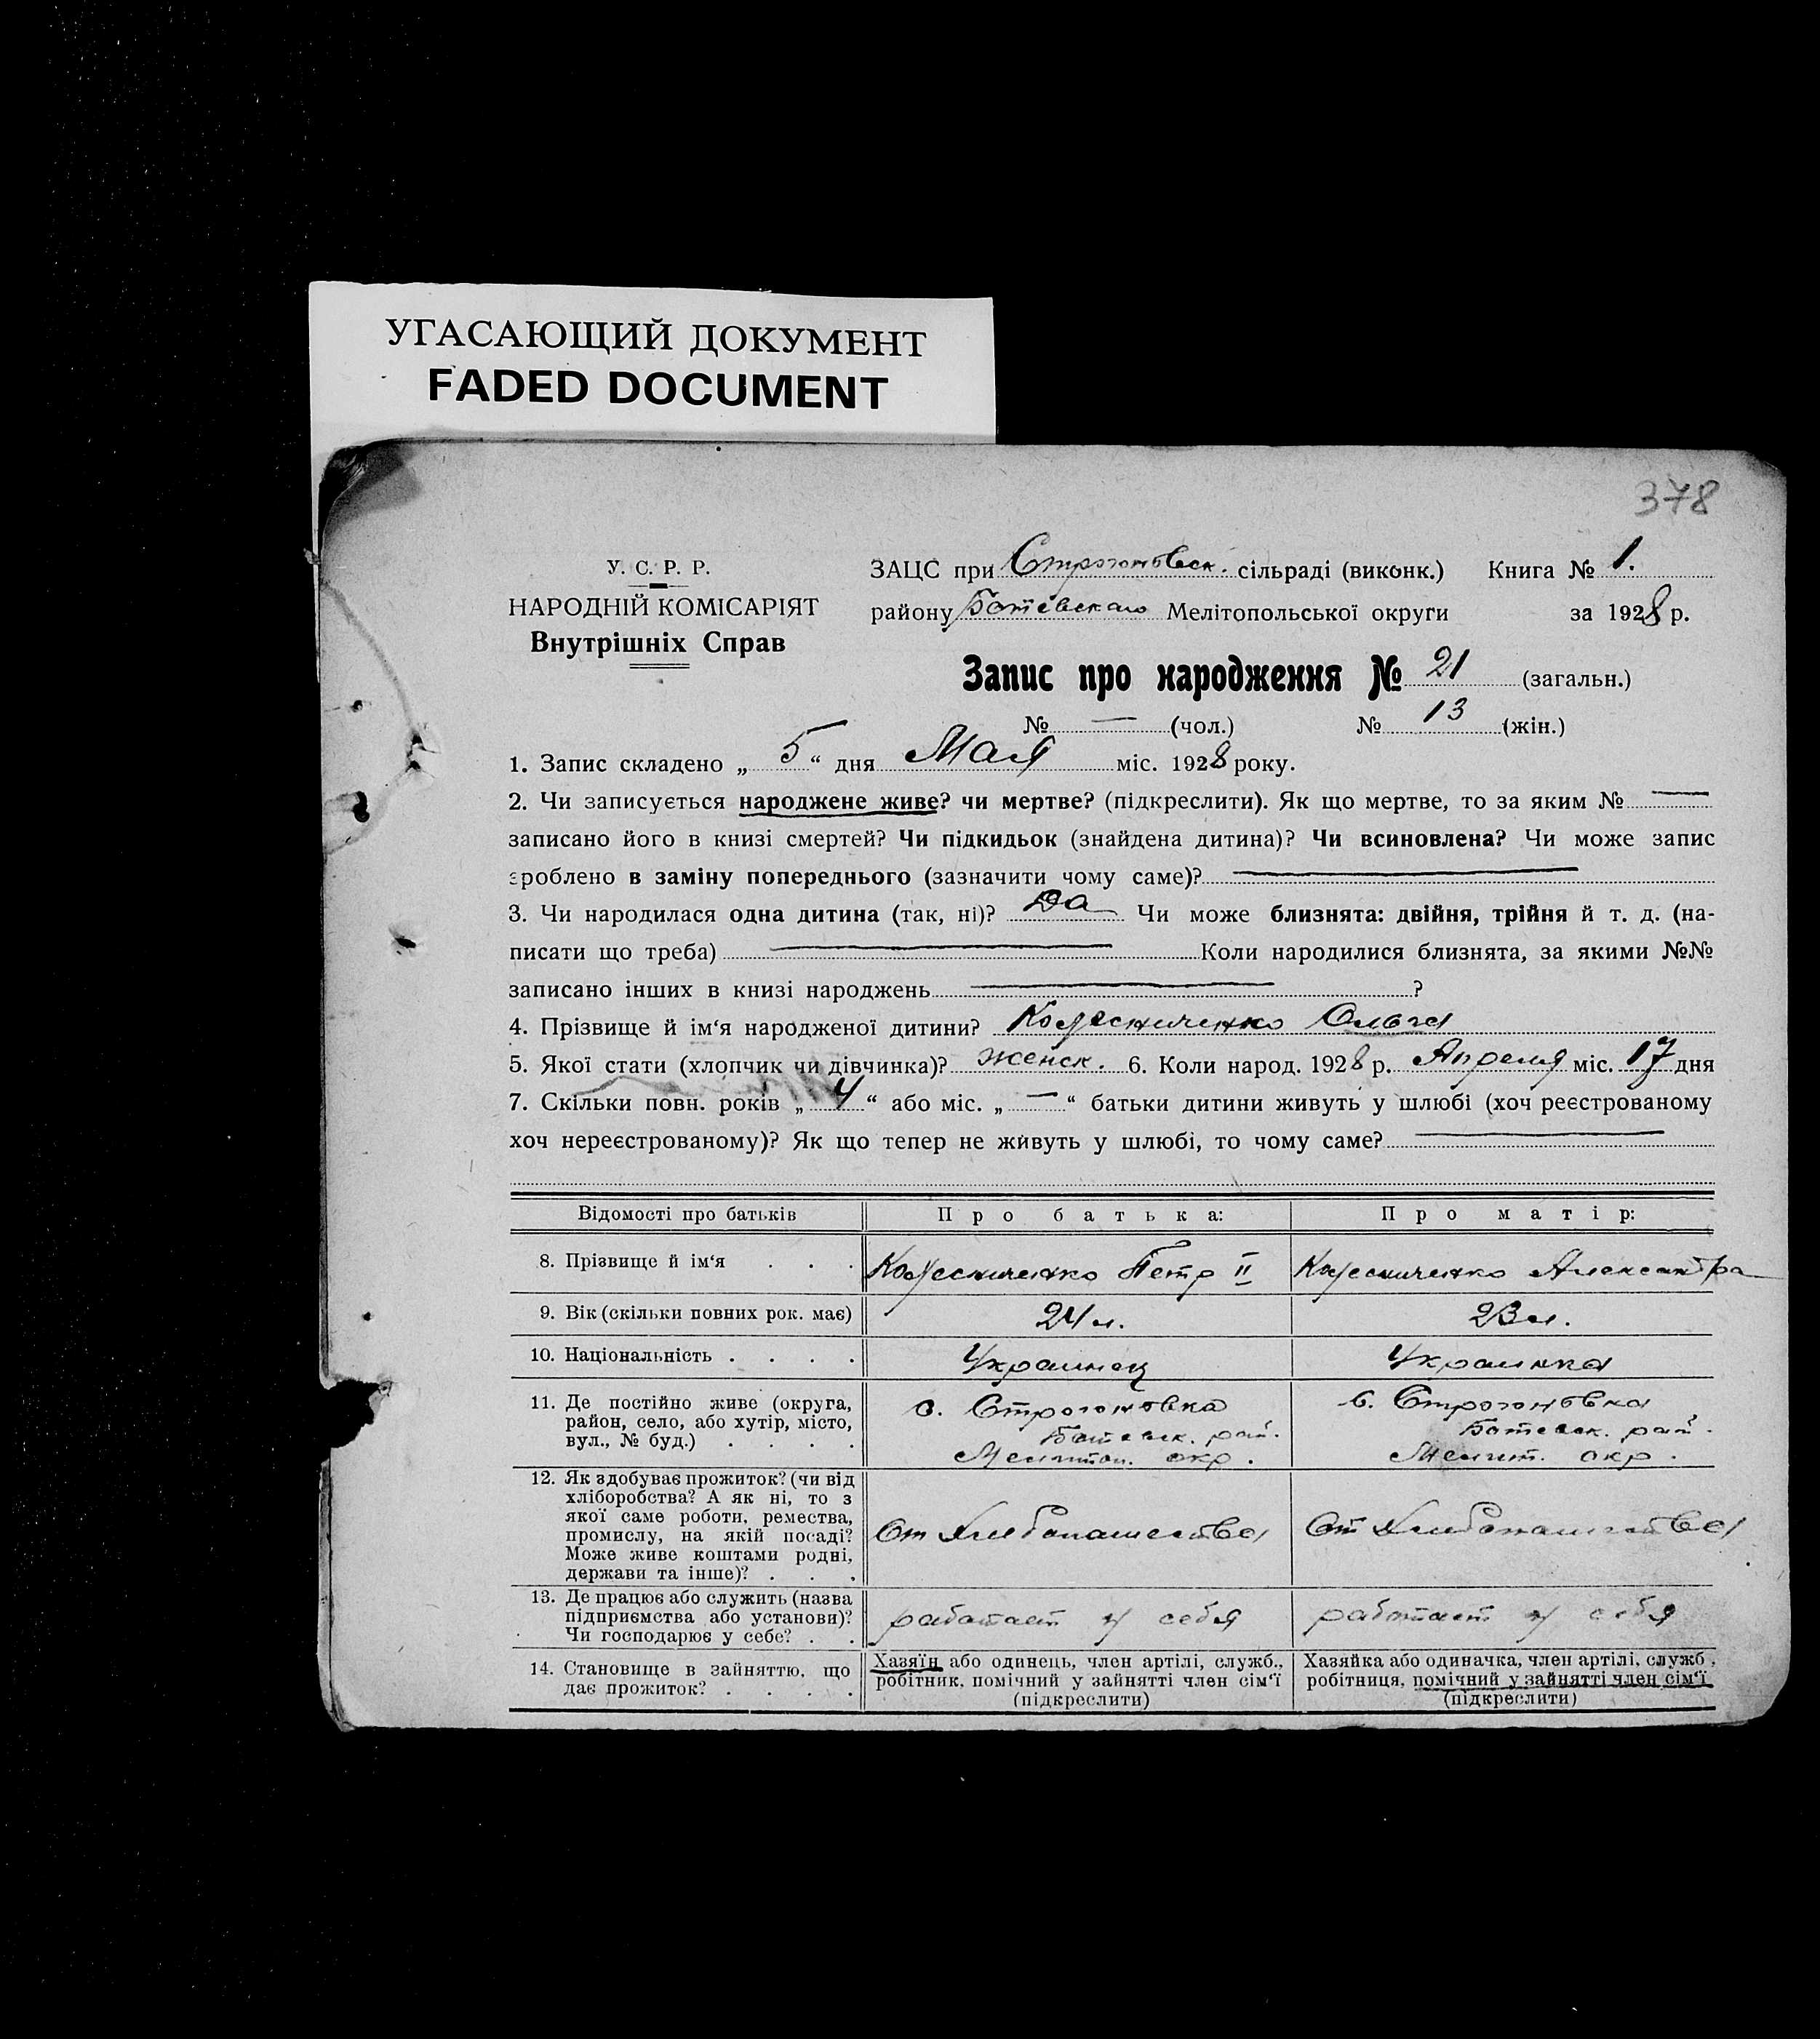 УГАСАЮЩИЙ ДОКУМЕНТ
FADED DOCUMENT
378
У. С. Р. Р.
НАРОДНІЙ КОМІСАРІЯТ
Внутрішніх Справ
ЗАЦС при Строгоновск. сільраді (виконк.) Книга № 1.
району Ботевского Мелітопольської округи за 1928 р.
Запис про народження № 21 (загальн.)
№ — (чол.) № 13 (жін.)
1. Запис складено „ 5 “ дня Мая міс. 1928 року.
2. Чи записується народжене живе? чи мертве? (підкреслити). Як що мертве, то за яким № —
записано його в книзі смертей? Чи підкидьок (знайдена дитина)? Чи всиновлена? Чи може запис
зроблено в заміну попереднього (зазначити чому саме)? —
3. Чи народилася одна дитина (так, ні)? Да Чи може близнята: двійня, трійня й т. д. (на-
писати що треба) — Коли народилися близнята, за якими №№
записано інших в книзі народжень — ?
4. Прізвище й ім‘я народженої дитини? Колесниченко Ольга
5. Якої стати (хлопчик чи дівчинка)? женск. 6. Коли народ. 1928 р. Апреля міс. 17 дня
7. Скільки повн. років „ 4 “ або міс. „ — “ батьки дитини живуть у шлюбі (хоч реєстрованому
хоч нереєстрованому)? Як що тепер не живуть у шлюбі, то чому саме? —
Відомості про батьків Про батька: Про матір:
8. Прізвище й ім‘я . . . Колесниченко Петр II Колесниченко Александра
9. Вік (скільки повних рок. має) 24 л. 23 л.
10. Національність . . . . Украинец Украинка
11. Де постійно живе (округа,
район, село, або хутір, місто,
вул., № буд.) . . . .
с. Строгоновка
Ботевск. рай.
Мелитоп. окр.
с. Строгоновка
Ботевск. рай.
Мелит. окр.
12. Як здобуває прожиток? (чи від
хліборобства? А як ні, то з
якої саме роботи, ремества,
промислу, на якій посаді?
Може живе коштами родні,
держави та інше)? . . .
От хлебопашества
От хлебопашества
13. Де працює або служить (назва
підприємства або установи)?
Чи господарює у себе? . .
работает у себя
работает у себя
14. Становище в зайняттю, що
дає прожиток? . . . .
Хазяїн або одинець, член артілі, служб.,
робітник, помічний у зайнятті член сім‘ї
(підкреслити)
Хазяйка або одиначка, член артілі, служб.,
робітниця, помічний у зайнятті член сім‘ї
(підкреслити)